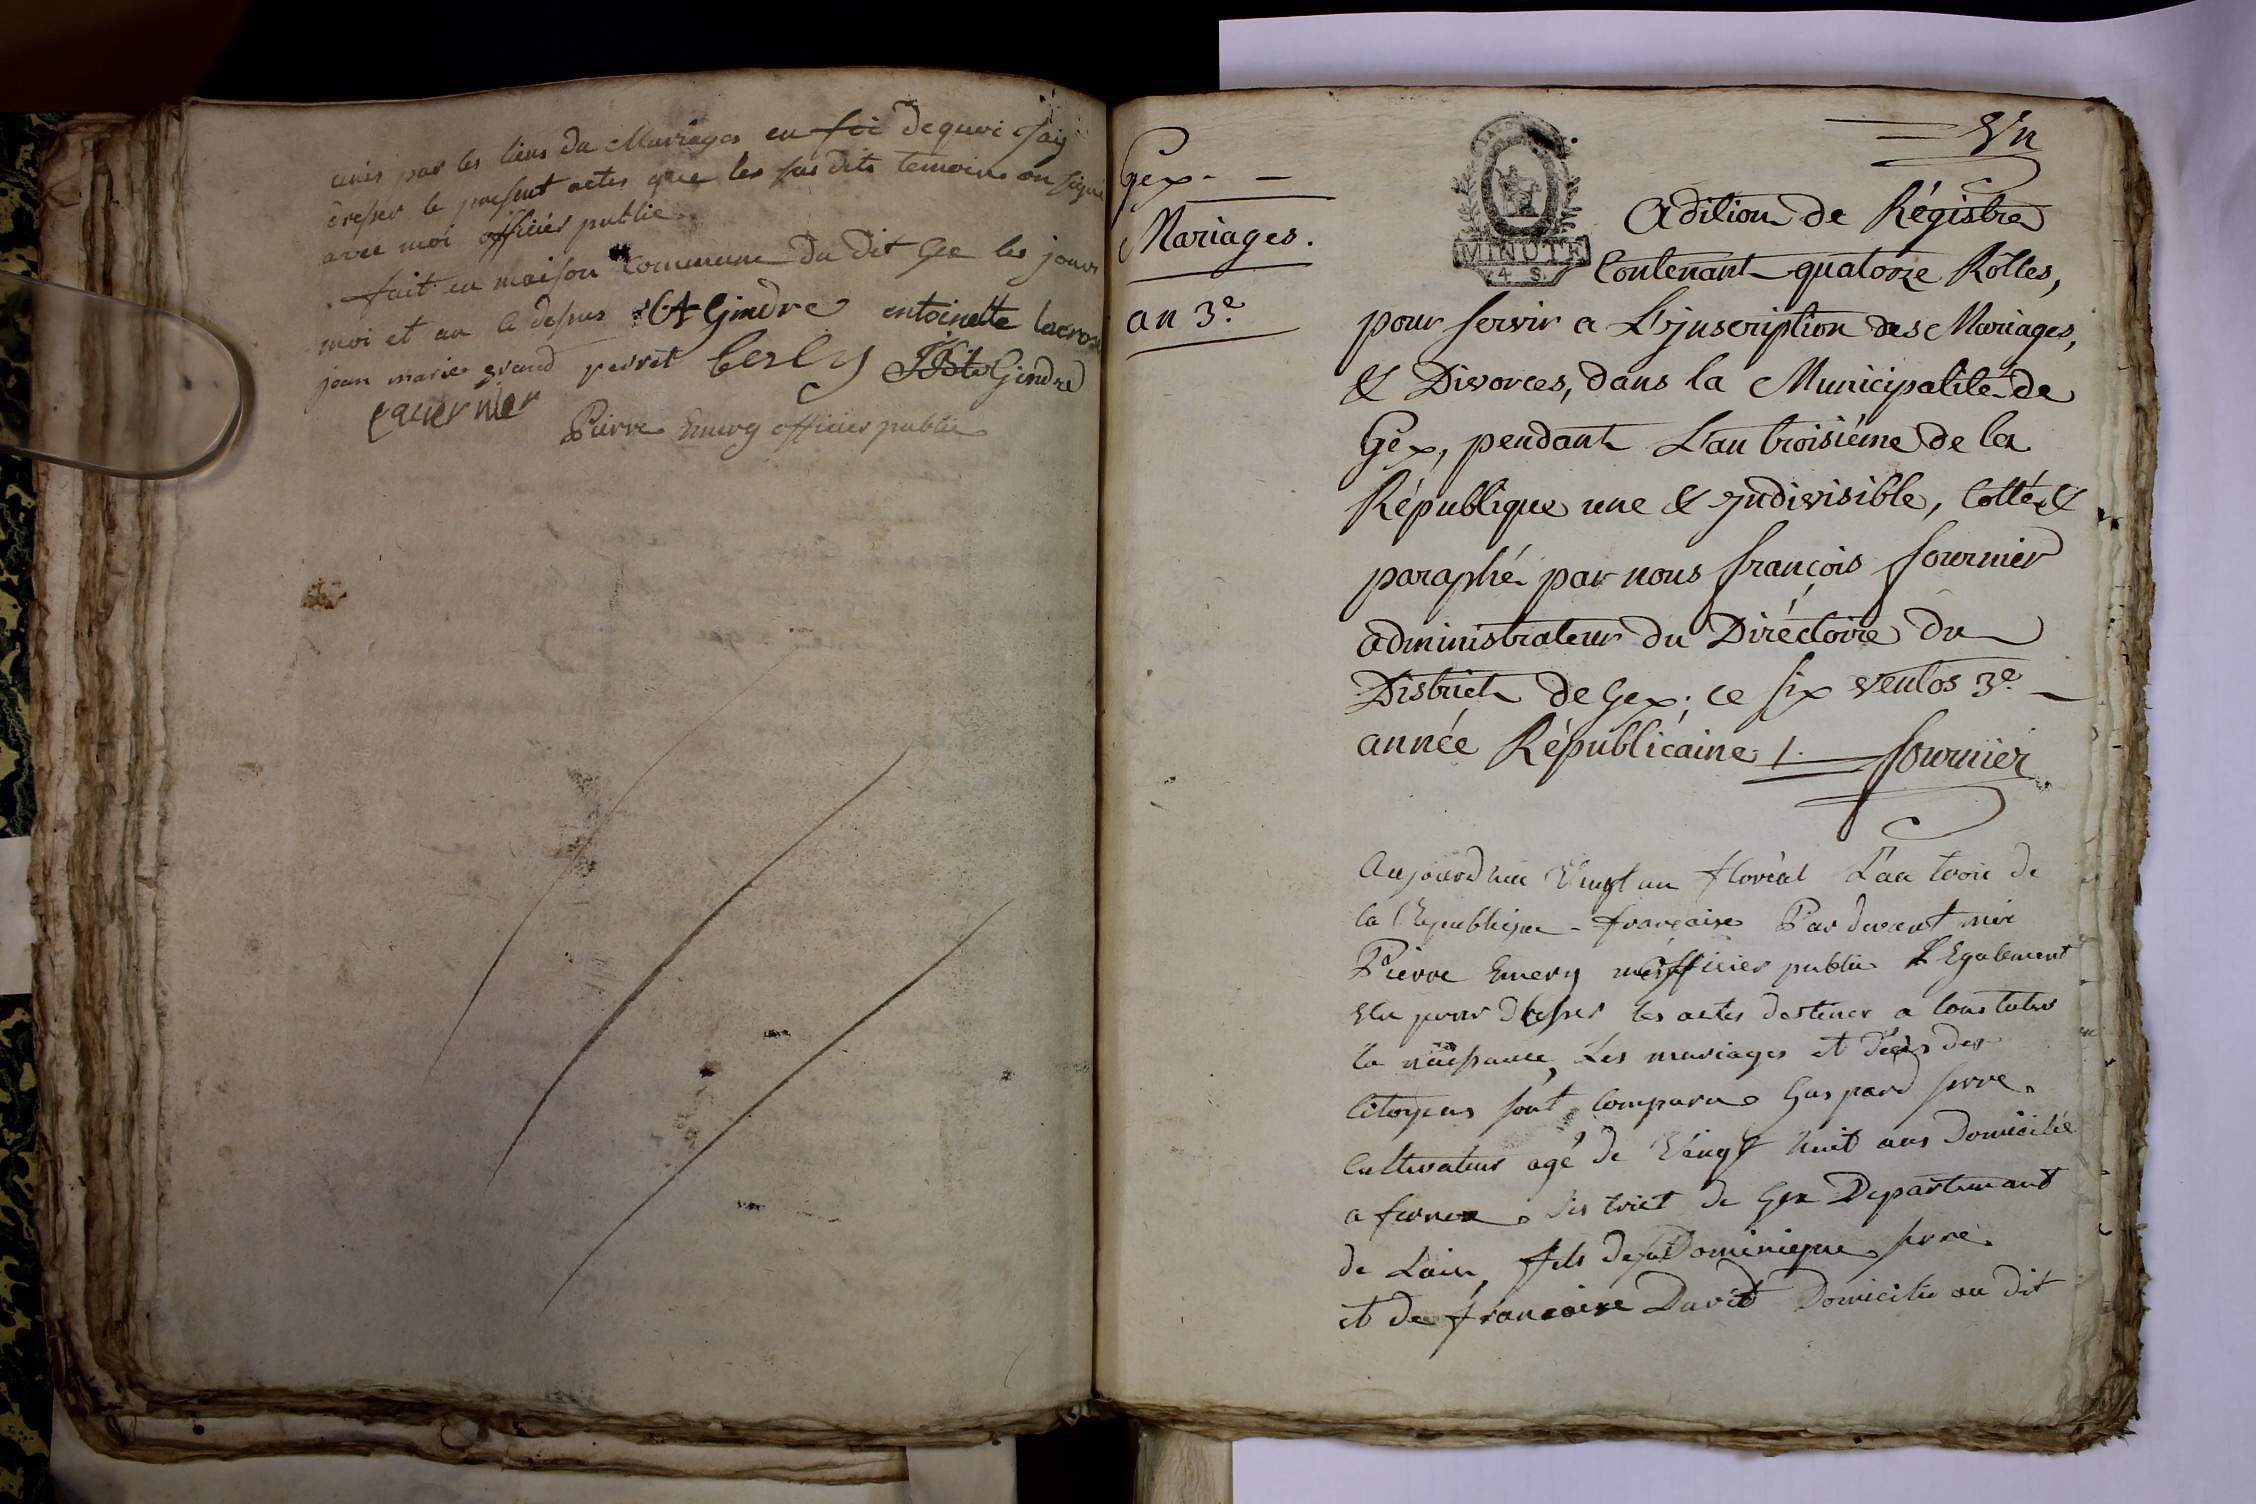 unis par les liens du Mariages en foi dequoi J'ai
dresser le present actes que les sus dits temoins on signé
avec moi officier public
fait en maison Commune du dit Gex les jours
moi et an ci desus Gindre antoinette lacroix
jean marie grand perret Gindre
Pierre Emery officier public
Gex
Mariages.
an 3.e
Un
MINUTE
4 S.
Adition de Régistre
Contenant quatorze Rolles,
pour servir a L'jnscription des Mariages,
& Divorces, dans la Municipalité de
Gex, pendant L'an troisiéme de la
République une & jndivisible, Cotté &
paraphé par nous françois fournier
administrateur du Diréctoire du
District de Gex; ce six ventos 3.e
année Républicaine /. fournier
Aujourd'hui Vingt un floréal L'an trois de
la Republique française Par devant moi
Pierre Emery officier public Egalement
Elu pour dresser les actes destiner a Constater
la naissance, Les mariages et décès des
Citoyens sont Comparu Gaspard serre
Cultivateur agé de Vingt huit ans Domicilié
a fernex district de Gex Departemant
de Lain, fils de feu Dominique serre
et de francoise David Domicilié au dit